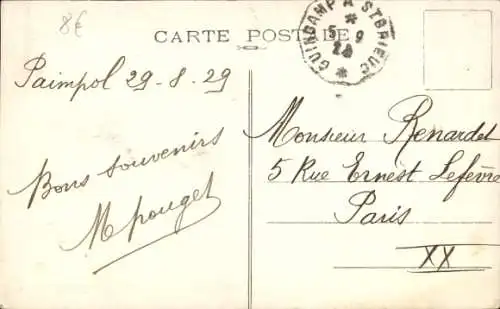 8€
CARTE POSTALE
GUINGAMP A ST BRIEUC
5 9
Paimpol 29-8-29
Bons souvenirs
M Pouget
Monsieur Renardet
5 Rue Ernest Lefèvre
Paris
XX